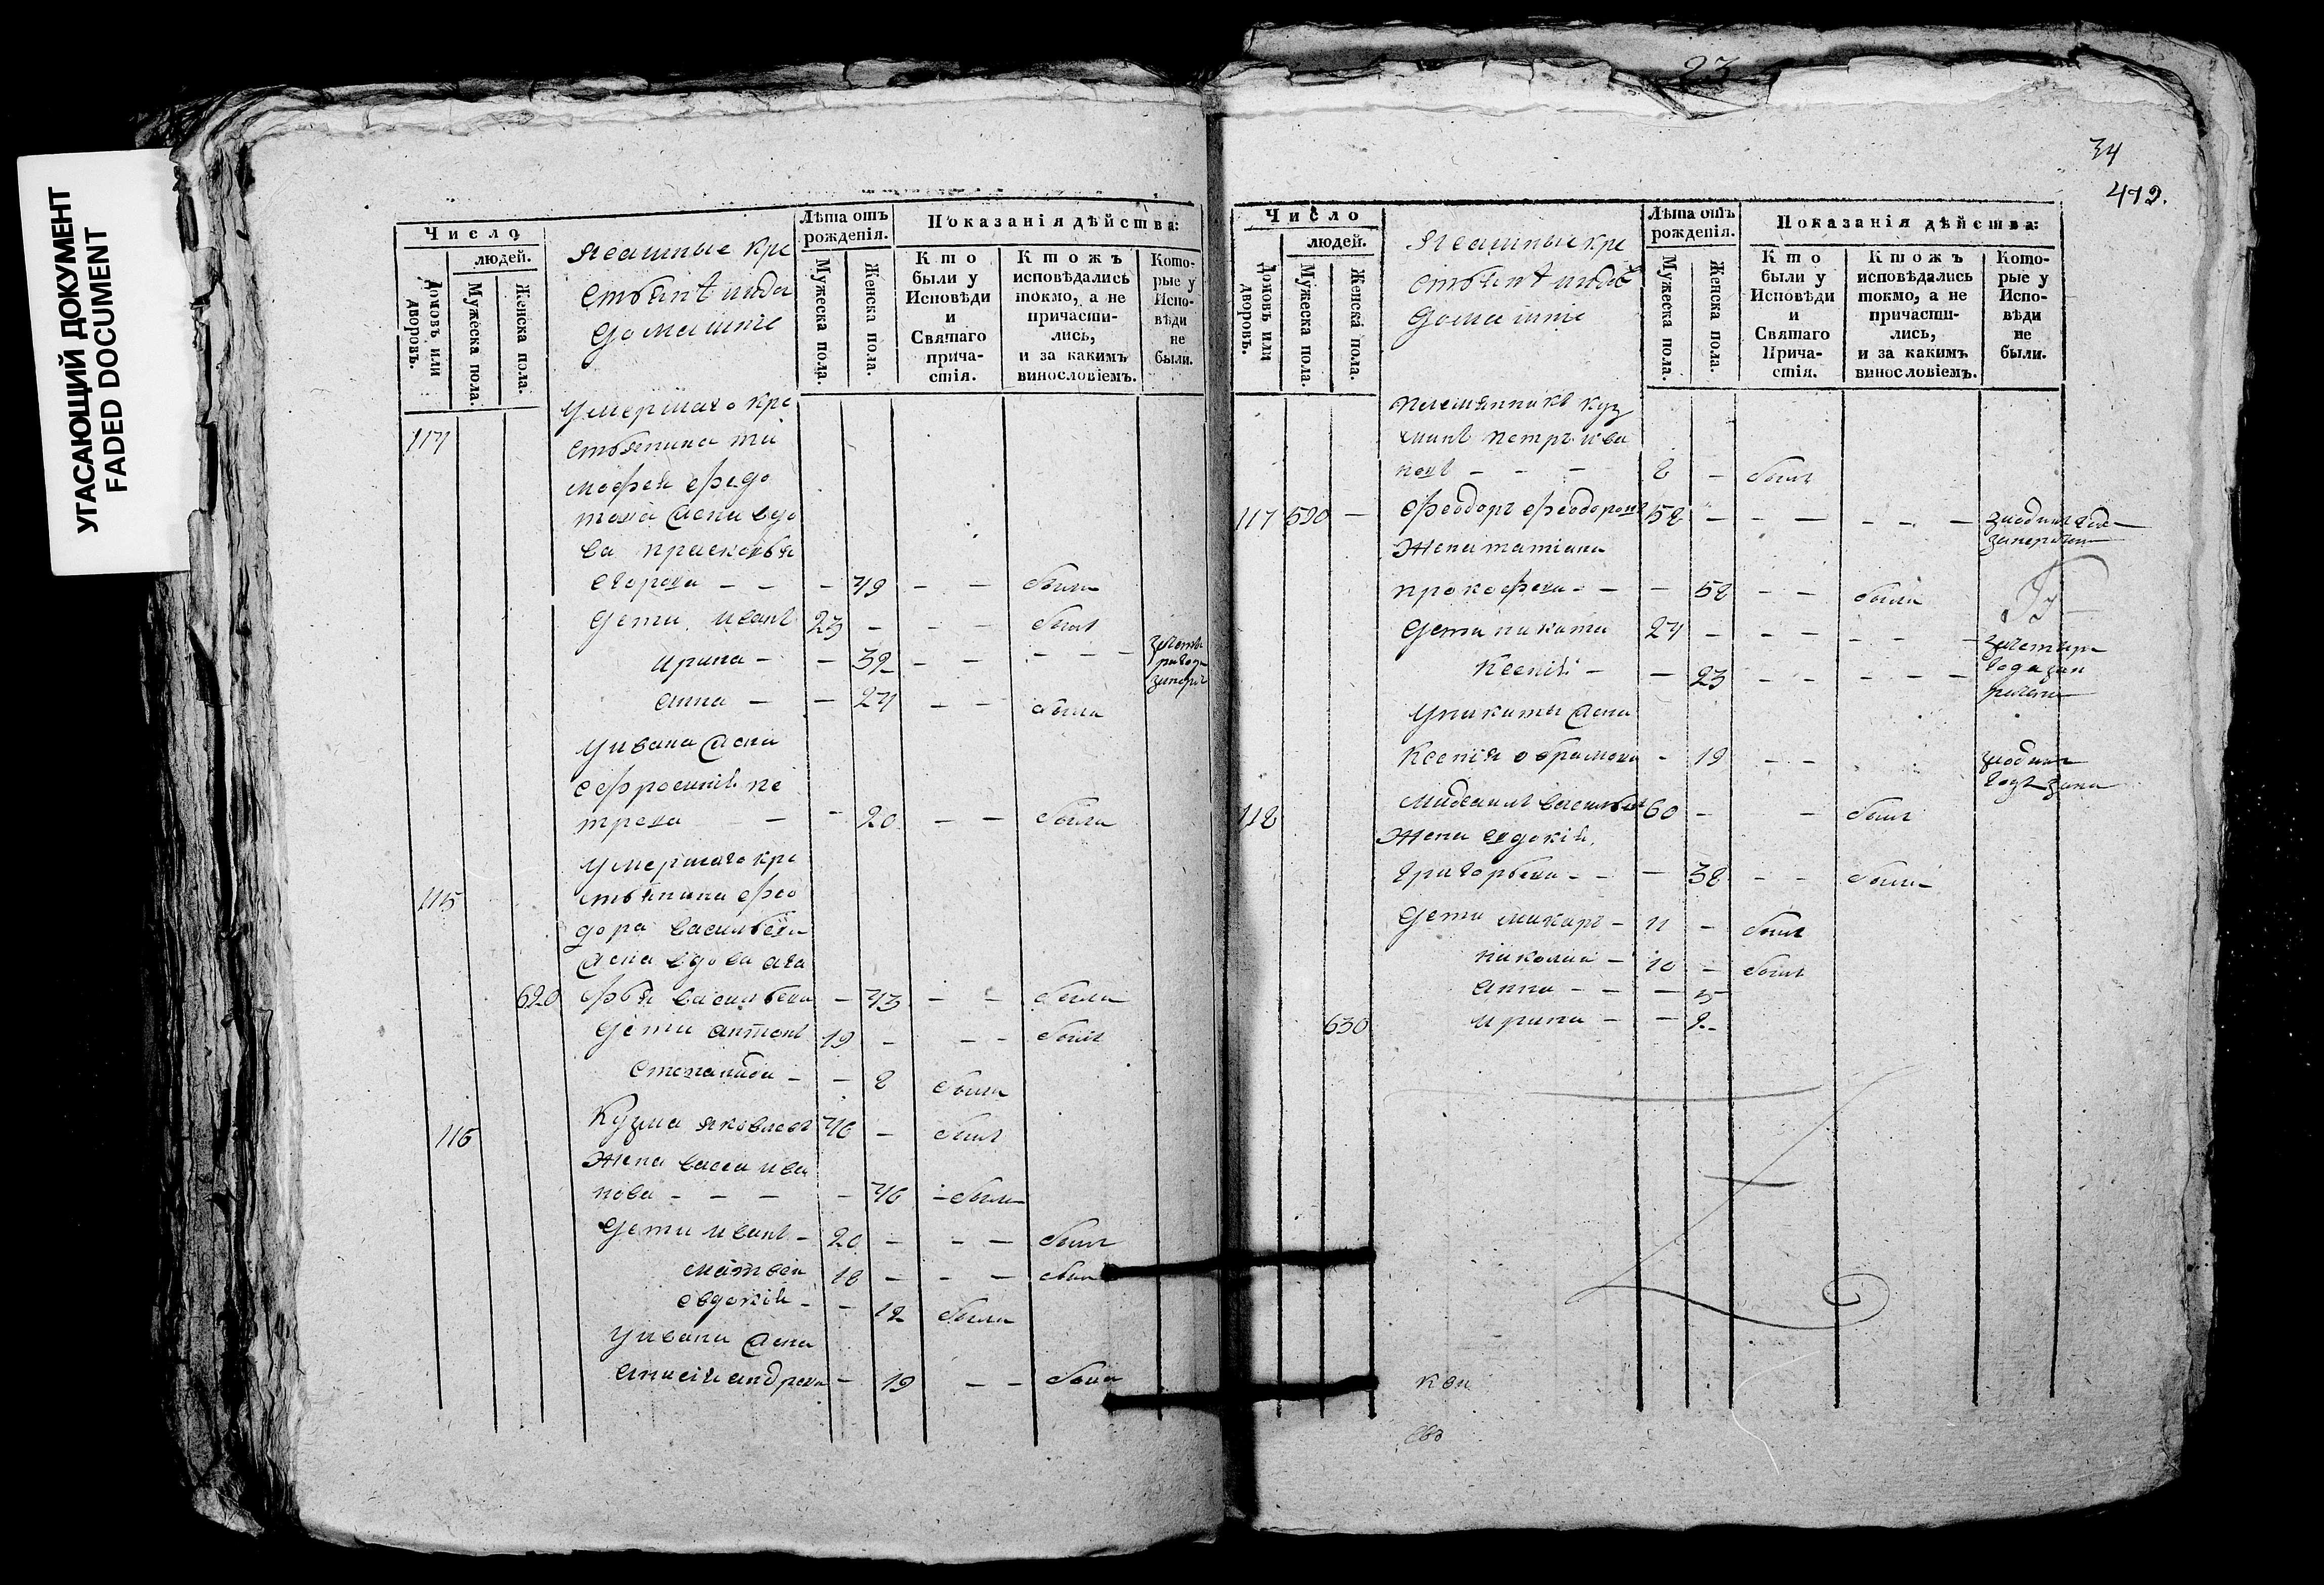 УГАСАЮЩИЙ ДОКУМЕНТ
FADED DOCUMENT
Число
людей.
Домовъ или дворовъ.
Мужеска пола.
Женска пола.
Ясашные кре
стьянѣ и ихъ
домашніе
Лѣта отъ рожденія.
Мужеска пола.
Женска пола.
Показанія дѣйства:
Кто были у Исповѣди и Святаго причастія.
Ктожъ исповѣдались токмо, а не причастились, и за какимъ винословіемъ.
Которые у Исповѣди не были.
114
умершаго кре
стьянина ти
мофея федо
това жена вдо
ва прасковья
егорова - - - 49 - - была
дети иванъ 23 - - - былъ
ирина - - 32 - - - - -
анна - - 24 - - была
у ивана жена
ефросинія пе
трова - - 20 - - была
умершаго кре
115 стьянина фео
дора васильева
жена вдова ага
620 фья васильева - 43 - - была
дети антонъ 19 - - - былъ
степанида - - 8 была
116 Кузма яковлевъ 46 - былъ
жена васса ива
нова - - - - 46 - была
дети иванъ - 20 - - - былъ
матвей 18 - - - былъ
евдокія - - 12 была
у ивана жена
анисія андреева - 19 - - была
23
34
412.
Число
людей.
Домовъ или дворовъ.
Мужеска пола.
Женска пола.
Ясашные кре
стьянѣ и ихъ
домашніе
Лѣта отъ рожденія.
Мужеска пола.
Женска пола.
Показанія дѣйства:
Кто были у Исповѣди и Святаго Причастія.
Ктожъ исповѣдались токмо, а не причастились, и за какимъ винословіемъ.
Которые у Исповѣди не были.
племянникъ куз
минъ петръ ива
новъ - - - 8 - былъ
117 590 - феодоръ феодоровъ 58 - - - - - -
жена татіана
прокофева - - - 58 - - была
дети никита 24 - - - - -
Ксенія - - 23 - - - - -
у никиты жена
Ксенія абрамова - 19 - -
118 михаилъ васильевъ 60 - - былъ
жена евдокія
григорьева - - - 38 - - была
дети макаръ - 11 - былъ
николай - 10 - былъ
анна - - - 5
630 ирина - - 2 -